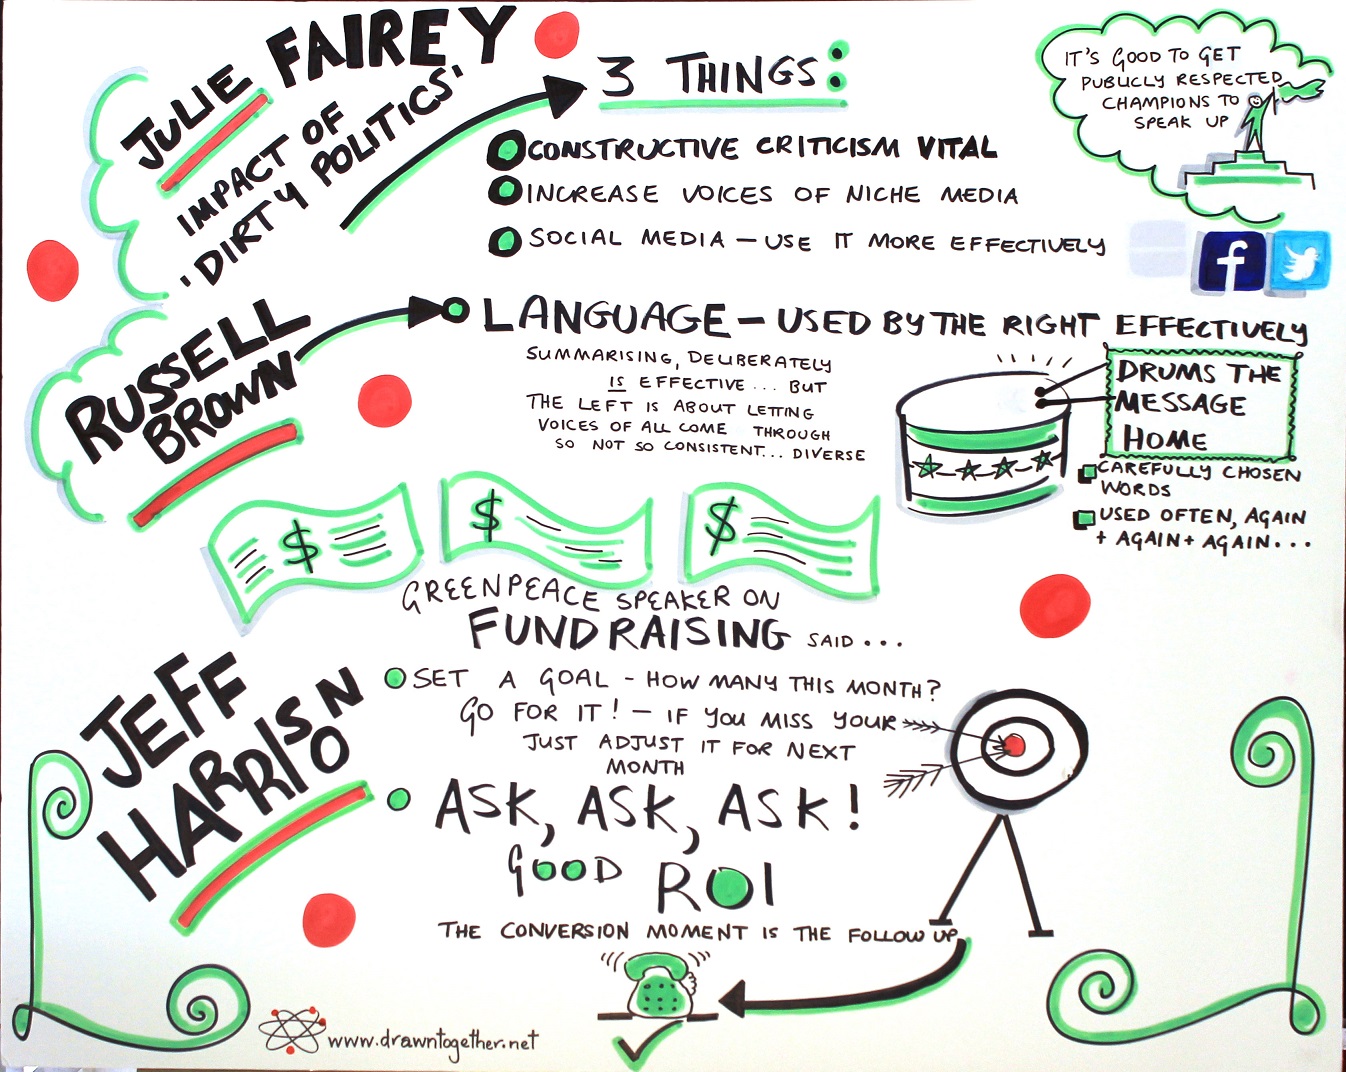 JULIE FAIREY
IMPACT OF
'DIRTY POLITICS'
3 THINGS:
CONSTRUCTIVE CRITICISM VITAL
INCREASE VOICES OF NICHE MEDIA
SOCIAL MEDIA - USE IT MORE EFFECTIVELY
IT'S GOOD TO GET
PUBLICLY RESPECTED
CHAMPIONS TO
SPEAK UP
f
RUSSELL
BROWN
LANGUAGE - USED BY THE RIGHT EFFECTIVELY
SUMMARISING, DELIBERATELY
IS EFFECTIVE ... BUT
THE LEFT IS ABOUT LETTING
VOICES OF ALL COME THROUGH
SO NOT SO CONSISTENT... DIVERSE
DRUMS THE
MESSAGE
HOME
CAREFULLY CHOSEN
WORDS
USED OFTEN, AGAIN
+ AGAIN + AGAIN...
$ $ $
GREENPEACE SPEAKER ON
FUNDRAISING SAID ...
JEFF
HARRISON
SET A GOAL - HOW MANY THIS MONTH?
GO FOR IT! - IF YOU MISS YOUR
JUST ADJUST IT FOR NEXT
MONTH
ASK, ASK, ASK!
GOOD ROI
THE CONVERSION MOMENT IS THE FOLLOW UP
www.drawntogether.net